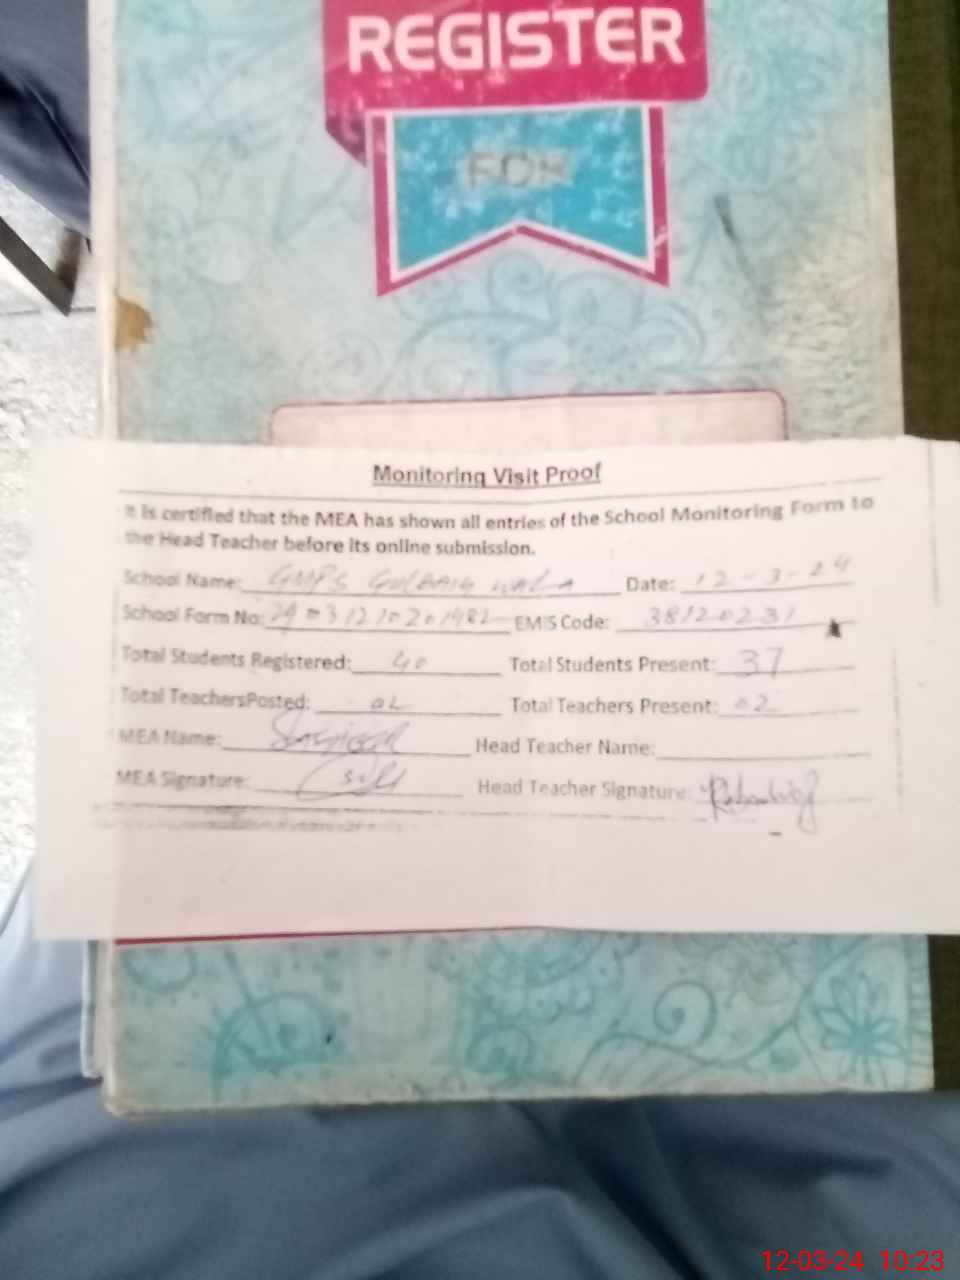 REGISTER
FOR
Monitoring Visit Proof
It is certified that the MEA has shown all entries of the School Monitoring Form to
the Head Teacher before its online submission.
School Name: GMPS Date: 12-3-24
School Form No: EMIS Code: 38120231
Total Students Registered: 40 Total Students Present: 37
Total TeachersPosted: 02 Total Teachers Present: 02
MEA Name: Head Teacher Name:
MEA Signature: Head Teacher Signature:
12-03-24 10:23